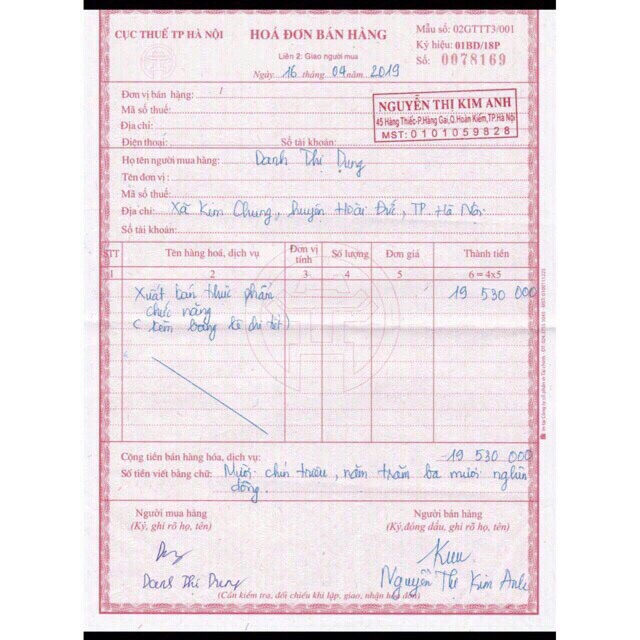 CỤC THUẾ TP HÀ NỘI
HOÁ ĐƠN BÁN HÀNG
Liên 2: Giao người mua
Ngày 16 tháng 09 năm 2019
Mẫu số: 02GTTT3/001
Ký hiệu: 01BD/18P
Số: 0078169
Đơn vị bán hàng:
Mã số thuế:
Địa chỉ:
Điện thoại: Số tài khoản:
NGUYỄN THỊ KIM ANH
45 Hàng Thiếc-P.Hàng Gai,Q.Hoàn Kiếm,TP.Hà Nội
MST: 0101059828
Họ tên người mua hàng: Danh Thị Dung
Tên đơn vị:
Mã số thuế:
Địa chỉ: Xã Kim Chung, huyện Hoài Đức, TP. Hà Nội
Số tài khoản:
STT Tên hàng hoá, dịch vụ Đơn vị tính Số lượng Đơn giá Thành tiền
1 2 3 4 5 6 = 4x5
Xuất bán thực phẩm 19 530 000
chức năng
( kèm bảng kê chi tiết )
Cộng tiền bán hàng hóa, dịch vụ: 19 530 000
Số tiền viết bằng chữ: Mười chín triệu, năm trăm ba mươi nghìn
đồng.
Người mua hàng Người bán hàng
(Ký, ghi rõ họ, tên) (Ký,đóng dấu, ghi rõ họ, tên)
Danh Thị Dung Nguyễn Thị Kim Anh
(Cần kiểm tra, đối chiếu khi lập, giao, nhận hoá đơn)